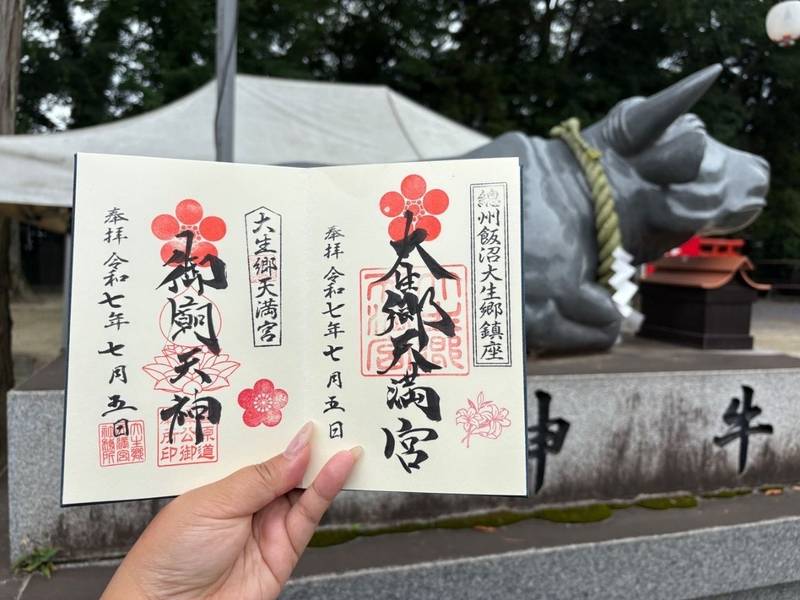 總州飯沼大生郷鎮座
大生郷天満宮
奉拝 令和七年七月五日
大生郷天満宮
御廟天神
奉拝 令和七年七月五日
神牛